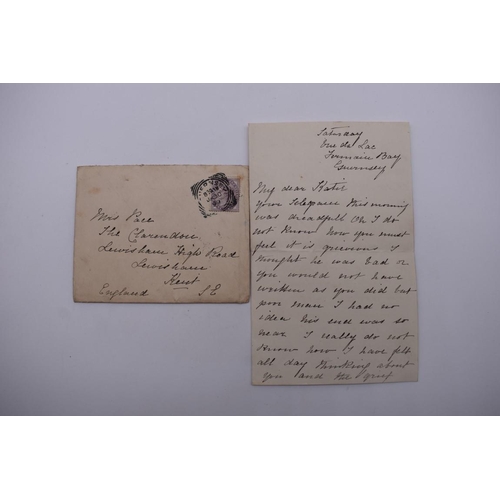 Mrs Pace
The Clarendon
Lewisham High Road
Lewisham
Kent
England S E
Saturday
Vue de Lac
Fermain Bay
Guernsey
My dear Katie
Your Telegram this morning
was dreadfull Oh I do
not know how you must
feel it is grievous I
thought he was bad or
you would not have
written as you did but
poor man I had no
idea his end was so
near I really do not
know how I have felt
all day thinking about
you and the grief